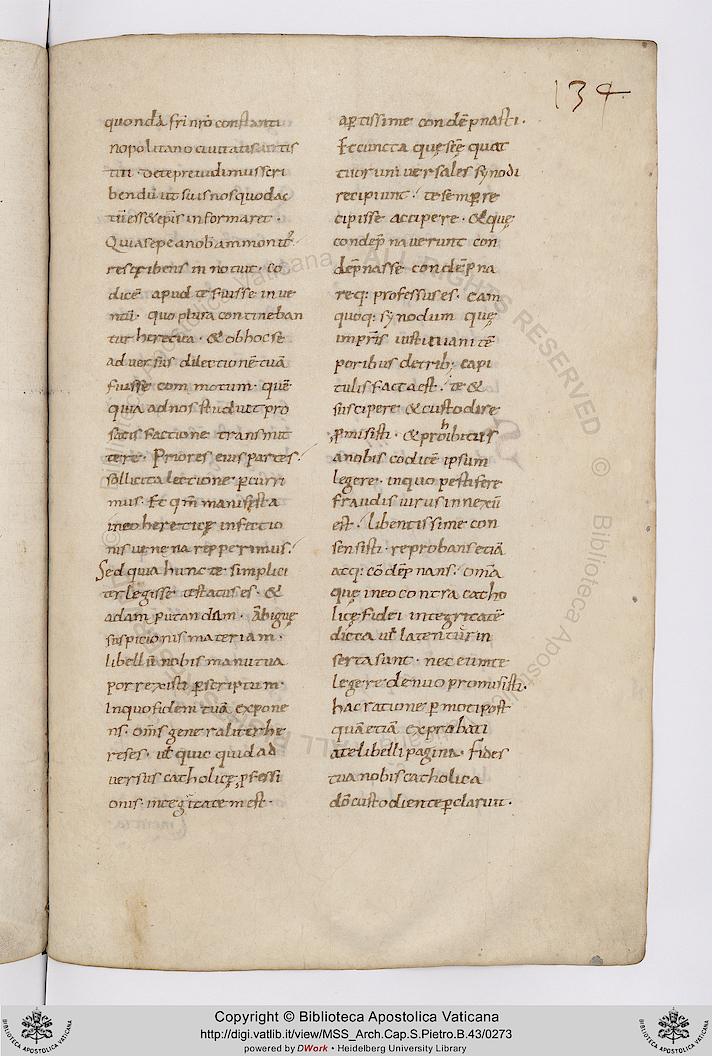 134
quondā fr̄i nr̄o constanti
nopolitano ciuitatis antis
titi · de te preuidimus scri
bendū ut suis nos quod ac
tū ess& ep̄is informaret ·
Quia sepe a nobis ammonit᾽
rescribens in notuit · co
dicē apud te fuisse inue
ntū · quo plura contineban
tur heretica · & ob hoc se
aduersus dilectionē tuā
fuisse commotum · quē
quia ad nos studuit pro
satisfactione transmit
tere · Priores eius partes ·
sollicita lectione ꝑcurri
mus · Et qm̄ manifesta
in eo hereticę infectio
nis uenena repperimus ·
Sed quia hunc te simplici
ter legisse testatus es · &
ad amputandam · Ābiguę
suspicionis materiam ·
libellū nobis manu tua
porrexisti ꝑscriptum ·
In quo fidem tuā expone
ns · om̄s generaliter he
reses · ut̄ quic quid ad
uersus catholicę ꝓfessi
onis · integritatem est ·
aꝑtissime condēpnasti ·
Et cuncta quę sc̄ę quat
tuor uniuersales synodi
recipiunt · te semper re
cipisse accipere · & quę
condēpnauerunt con
dēpnasse condēpna
req: professus es · Eam
quoq: synodum quę
imp̄ris iustiniani tē
poribus de trib; capi
tulis facta est · te &
suscipere & custodire
ꝓmisisti · & prohibitus
a nobis codicē ipsum
legere · in quo pestifere
fraudis uirus innexū
est · libentissime con
sensisti · reprobans etiā
atq: cōdēpnans · om̄a
quę in eo contra catho
licę fidei integritatē
dicta ut̄ latentur in
serta sunt · nec eum te
legere denuo promisisti ·
hac ratione ꝑmoti post
quā etiā exprobati
a te libelli pagina · Fides
tua nobis catholica
dō custodiente ꝑclaruit ·
Copyright © Biblioteca Apostolica Vaticana
http://digi.vatlib.it/view/MSS_Arch.Cap.S.Pietro.B.43/0273
powered by DWork • Heidelberg University Library